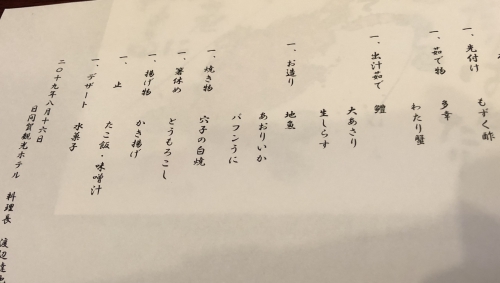 一、先付け　もずく酢
一、茹で物　多幸
わたり蟹
一、出汁茹で　鱧
大あさり
生しらす
一、お造り　地魚
あおりいか
バフンうに
一、焼き物　穴子の白焼
一、箸休め　とうもろこし
一、揚げ物　かき揚げ
一、止　たこ飯・味噌汁
一、デザート　水菓子
二〇十九年八月十六日
日間賀観光ホテル　料理長　渡辺